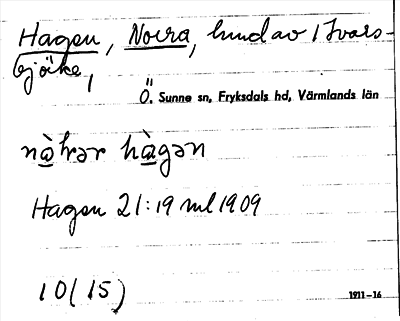 Hagen, Norra, hmd av 1 Ivars-
bjöke,
Ö. Sunne sn, Fryksdals hd, Värmlands län
nòrər hàgən
Hagen 21:19 ml 1909
10(15)
1911–16